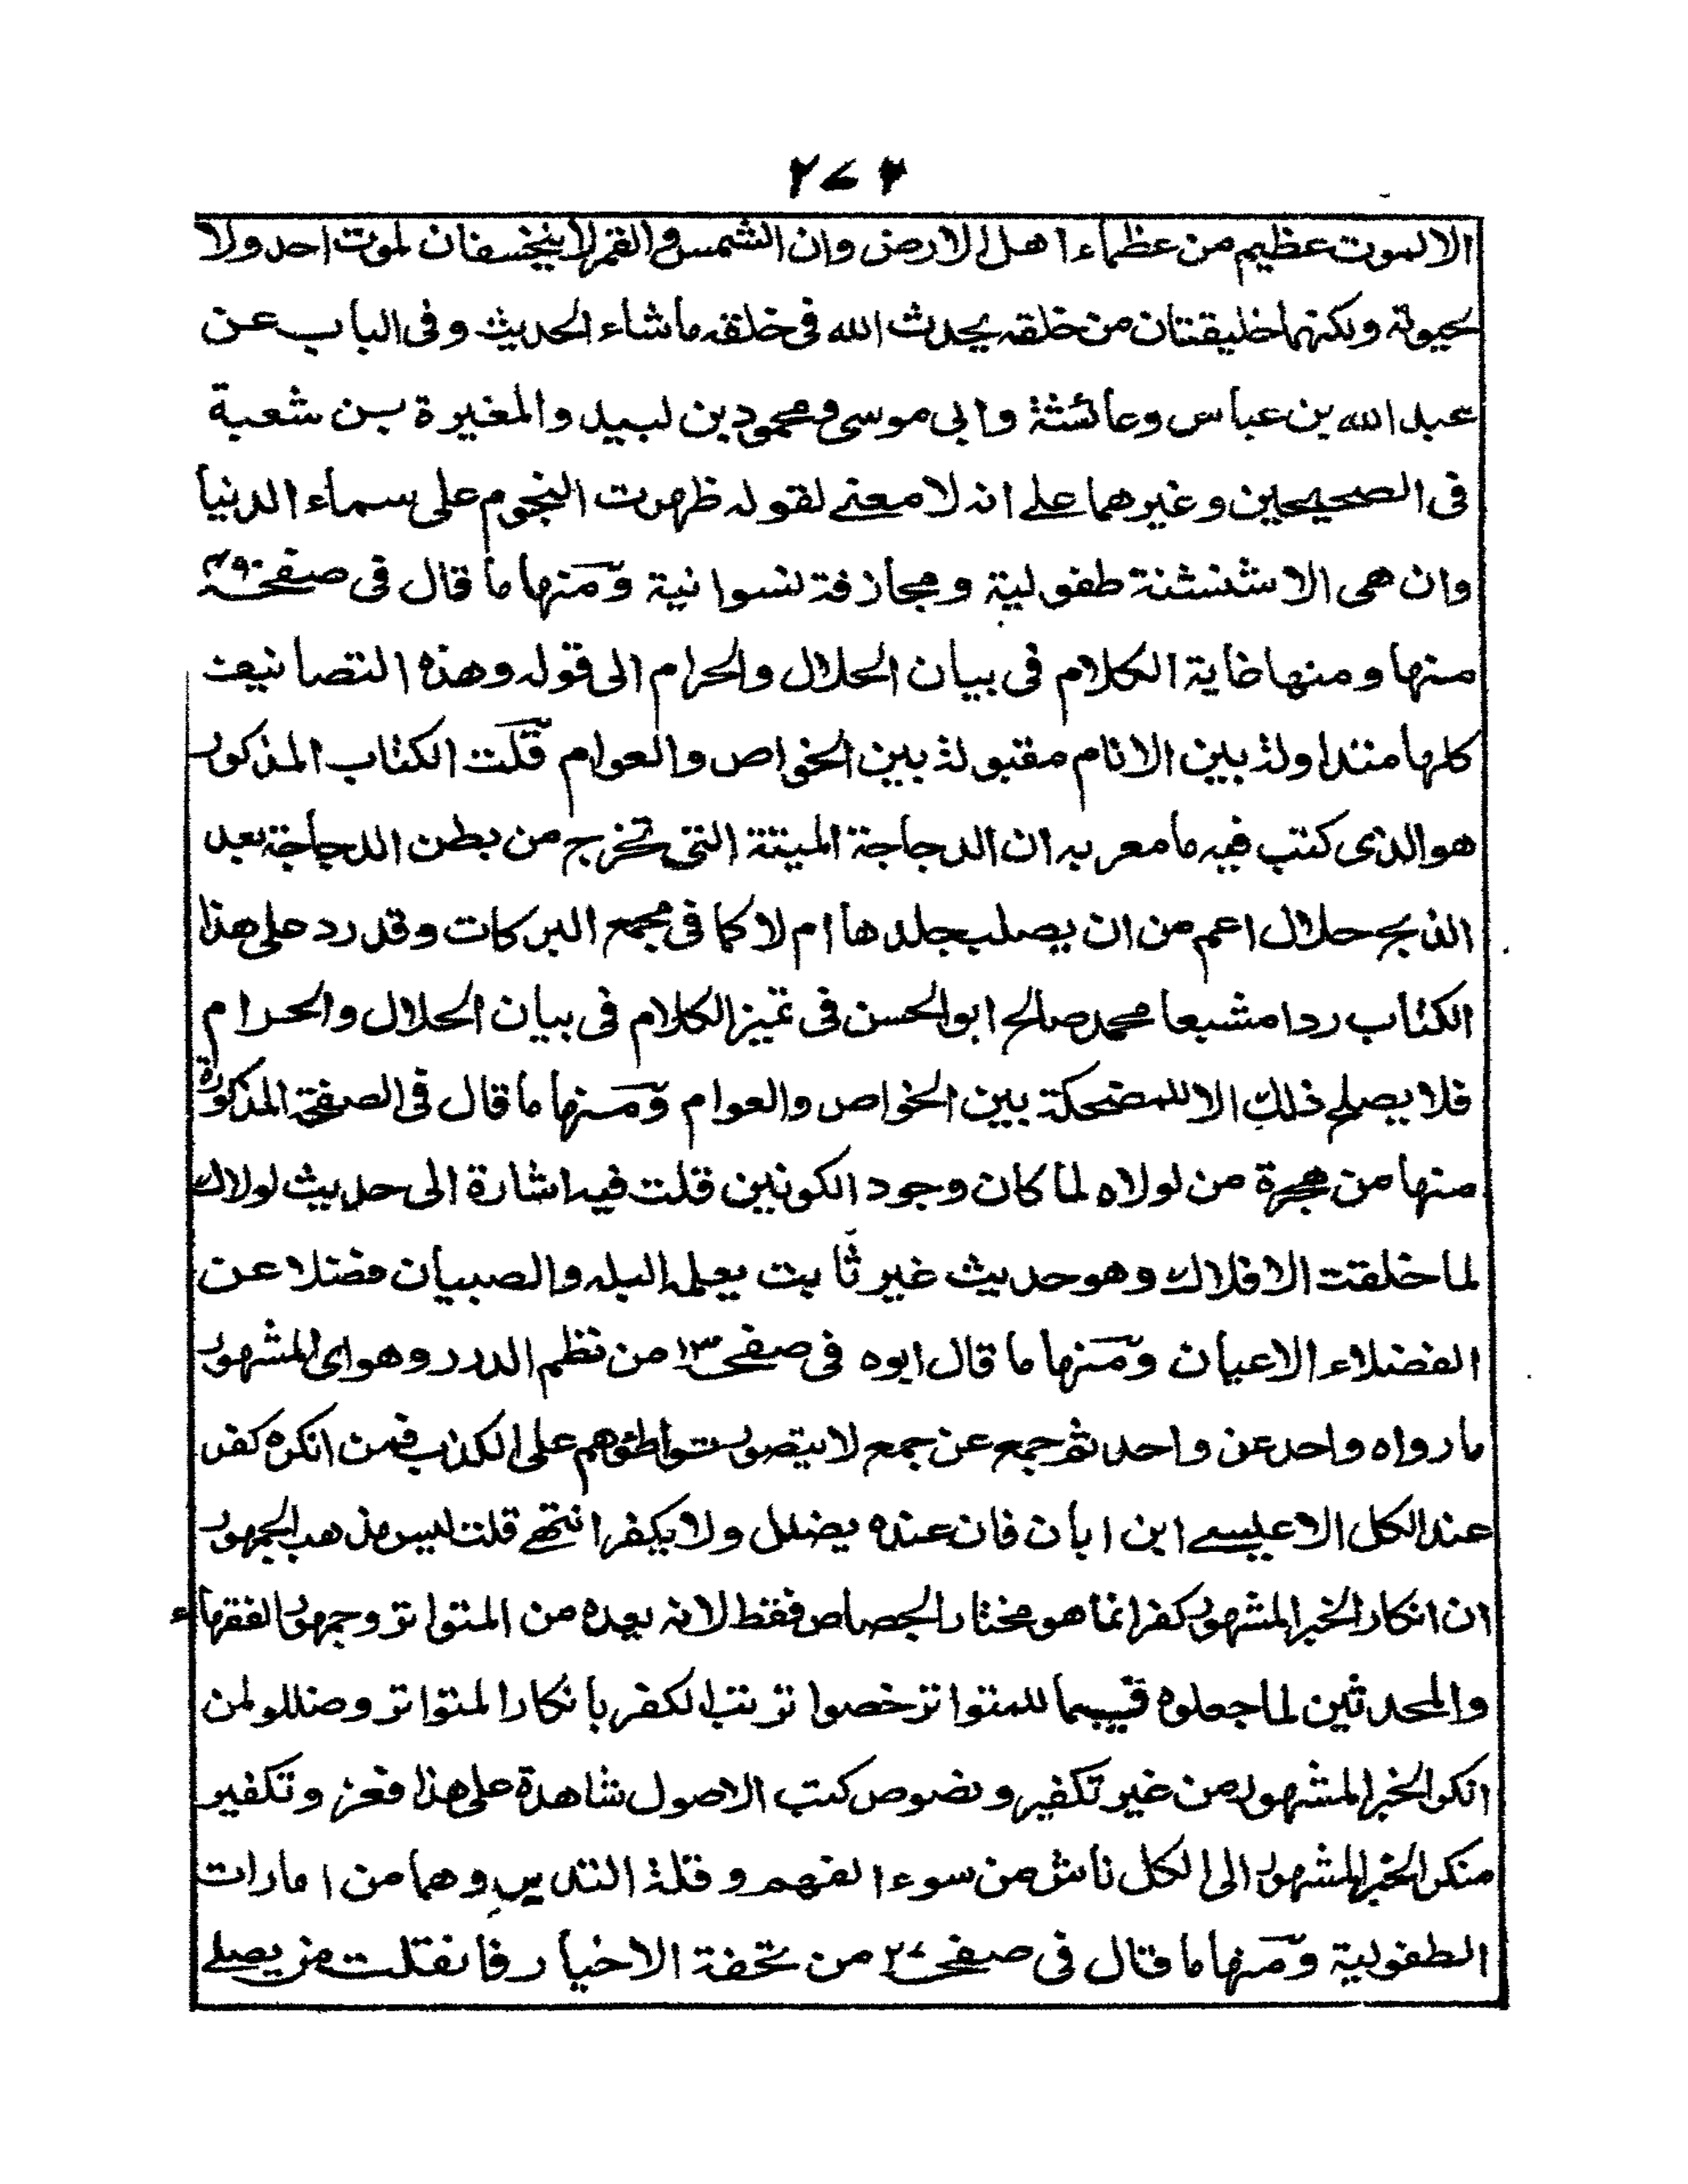 ٢٧٢
الا لموت عظيم من عظماء اهل الارض وان الشمس والقمر لا ينخسفان لموت احد ولا
لحيوته ولكنهما خليقتان من خلقه يحدث الله فى خلقه ما شاء الحديث وفى الباب عن
عبد الله بن عباس وعائشة وابى موسى ومحمود بن لبيد والمغيرة بن شعبة
فى الصحيحين وغيرهما على انه لا معنے لقوله ظهرت النجوم على سماء الدنيا
وان هى الا شنشنة طفولية ومجازفة نسوانية ومنها ما قال فى صفحة
منها ومنها غاية الكلام فى بيان الحلال والحرام الى قوله وهذه التصانيف
كلها متداولة بين الانام مقبولة بين الخواص والعوام قلت الكتاب المذكور
هو الذى كتب فيه ما معربه ان الدجاجة الميتة التى تخرج من بطن الدجاجة بعد
الذبح حلال اعم من ان يصلب جلدها ام لا كما فى مجمع البركات وقد رد على هذا
الكتاب ردا مشبعا محمد صالح ابو الحسن فى تميز الكلام فى بيان الحلال والحرام
فلا يصلح ذلك الا للمضحكة بين الخواص والعوام ومنها ما قال فى الصفحة المذكورة
منها من هجرة من لولاه لما كان وجود الكونين قلت فيه اشارة الى حديث لولاك
لما خلقت الافلاك وهو حديث غير ثابت يعلمه البله والصبيان فضلا عن
الفضلاء الاعيان ومنها ما قال ابوه فى صفحة ١٣ من نظم الدرر وهو اى المشهور
ما رواه واحد عن واحد ثم جمع عن جمع لا يتصور تواطئوهم على الكذب فمن انكره كفر
عند الكل الا عيسے ابن ابان فان عنده يضلل ولا يكفر انتهے قلت ليس مذهب الجمهور
ان انكار الخبر المشهور كفر انما هو مختار الجصاص فقط لانه يعده من المتواتر وجمهور الفقهاء
والمحدثين لما جعلوه قسيما للمتواتر خصوا ترتب الكفر بانكار المتواتر وضللو لمن
انكر الخبر المشهور من غير تكفير ونصوص كتب الاصول شاهدة على هذا فعزو تكفير
منكر الخبر المشهور الى الكل ناش من سوء الفهم وقلة التدبر وهما من امارات
الطفولية ومنها ما قال فى صفحة ٢٧ من تحفة الاخيار فانقلت من يصلے